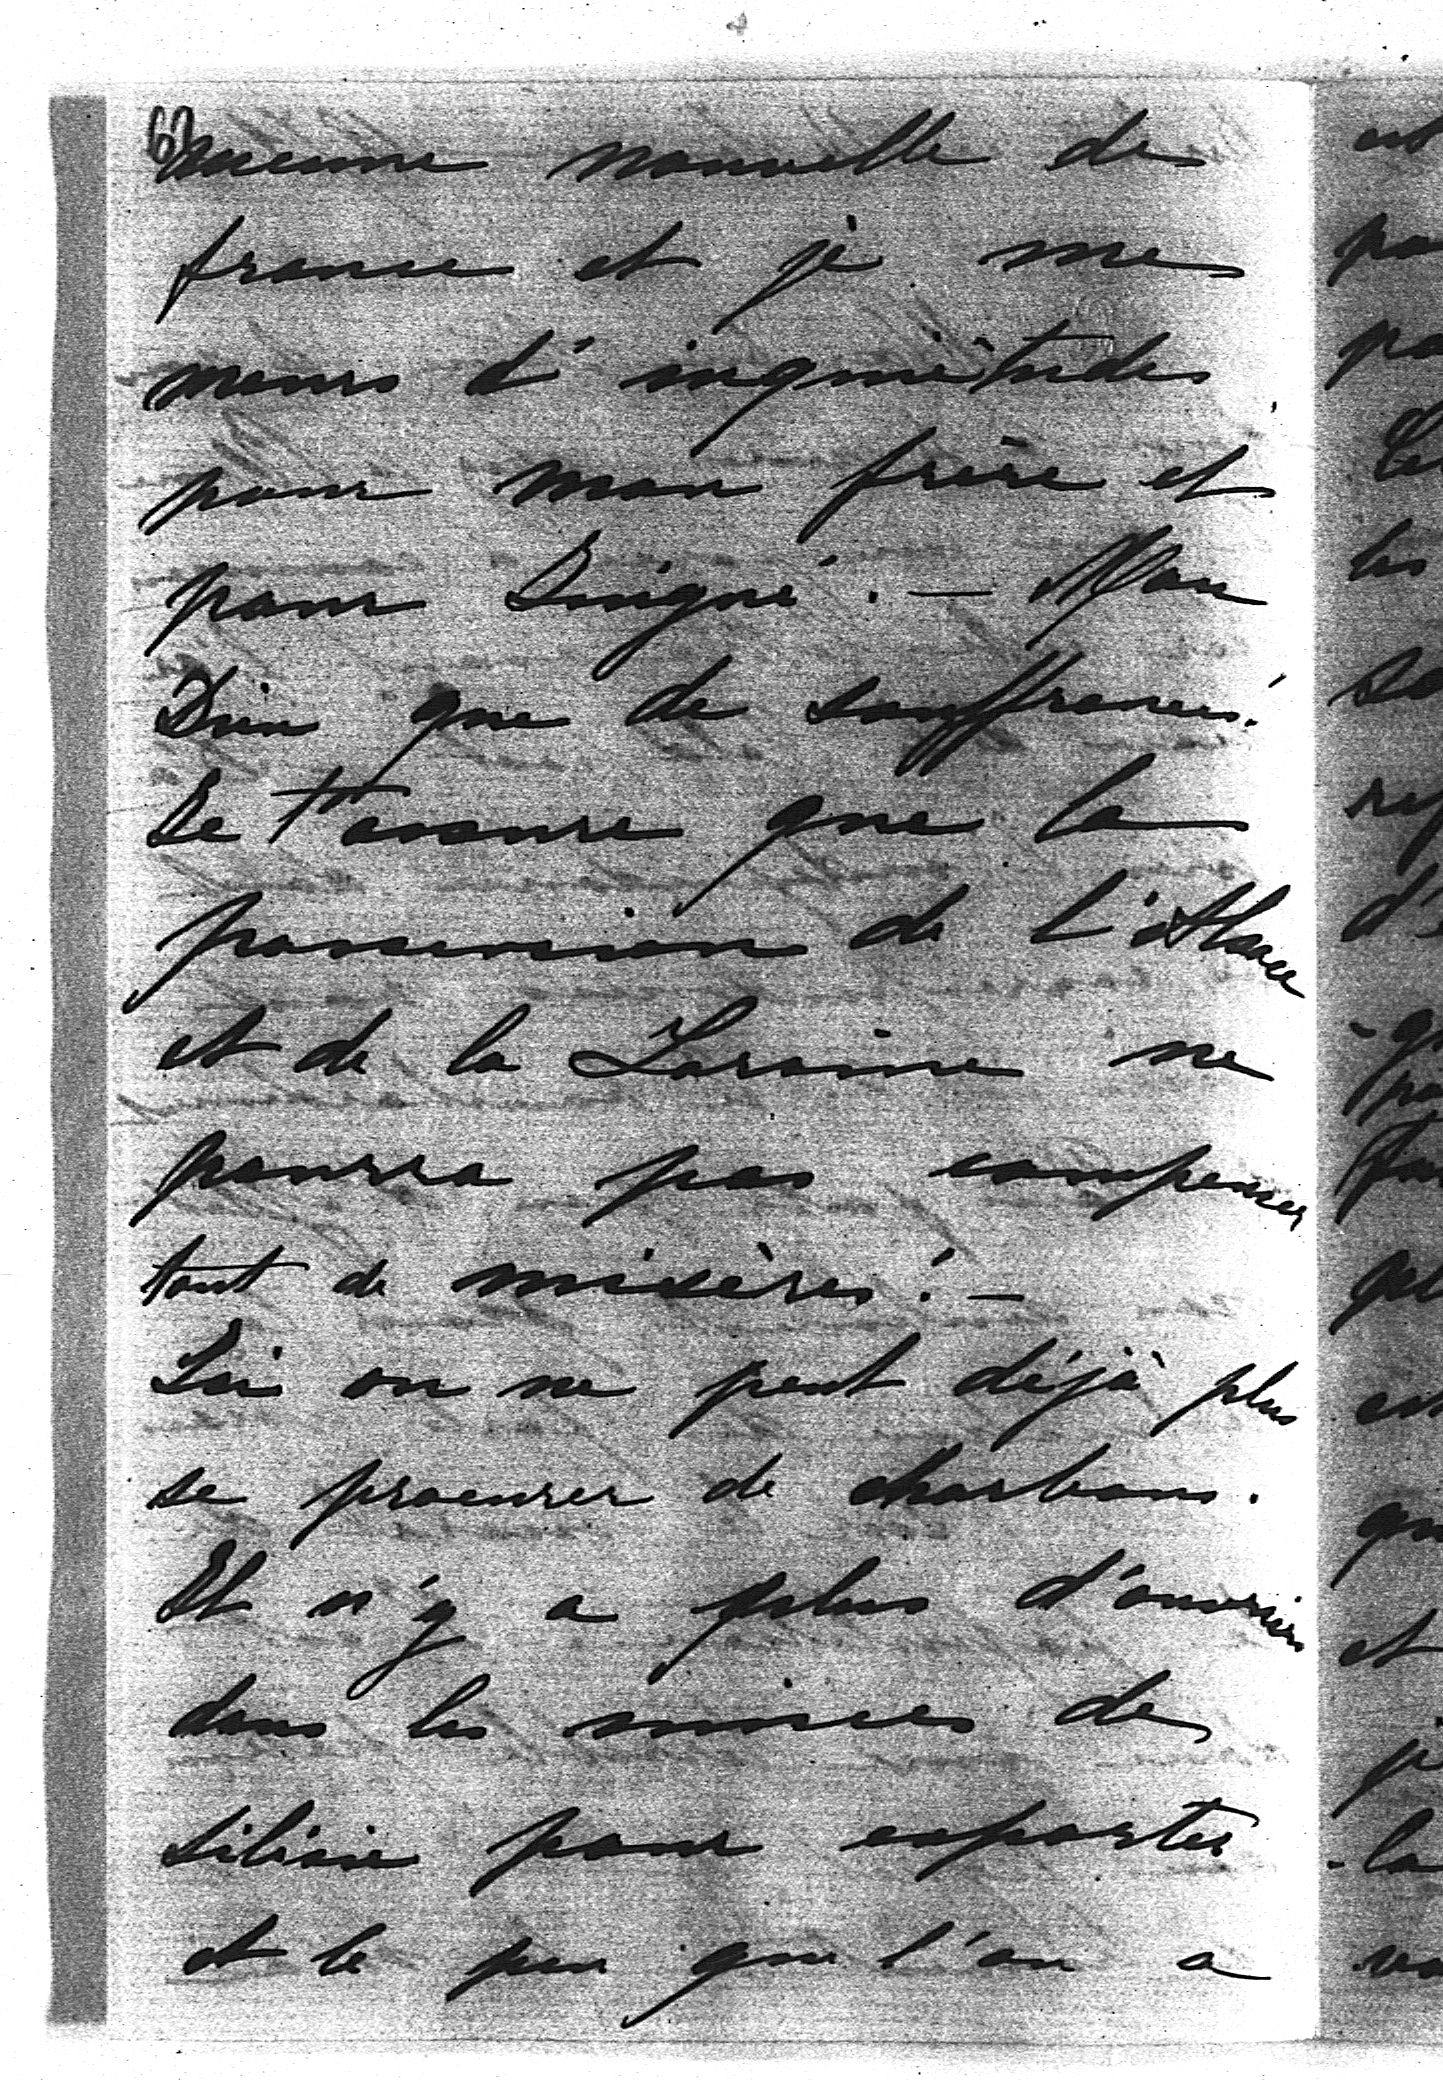 6)
aucune nouvelle de
france et je me
meurs d'inquiètudes
pour mon frère et
pour Guigné. — Mon
Dieu que de souffrances!
Je t'assure que la
possession de L'Alsace
et de la Loraine ne
pourra pas compenser
tant de misères! —
Ici on ne peut déjà plus
se procurer de charbons.
Il n'y a plus d'ouvriers
dans les mines de
Silésie pour exporter
et le peu que l'on a